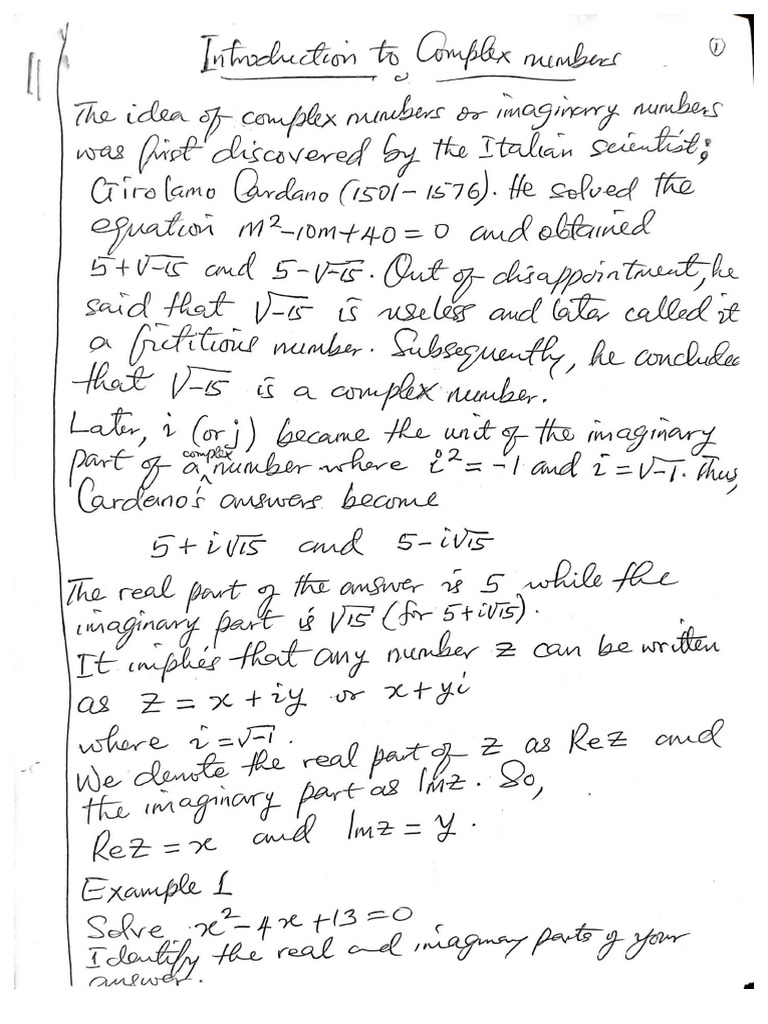 Introduction to Complex numbers ①
The idea of complex numbers or imaginary numbers
was first discovered by the Italian scientist;
Girolamo Cardano (1501-1576). He solved the
equation m²-10m+40=0 and obtained
5+√-15 and 5-√-15. Out of disappointment, he
said that √-15 is useless and later called it
a frictitious number. Subsequently, he concluded
that √-15 is a complex number.
Later, i (or j) became the unit of the imaginary
part of a complex number where i²=-1 and i=√-1. Thus,
Cardano's answers become
5+i√15 and 5-i√15
The real part of the answer is 5 while the
imaginary part is √15 (for 5+i√15).
It implies that any number z can be written
as z = x+iy or x+yi
where i=√-1.
We denote the real part of z as Rez and
the imaginary part as Imz. So,
Rez = x and Imz = y.
Example 1
Solve x²-4x+13=0
Identify the real and imaginary parts of your
answer.